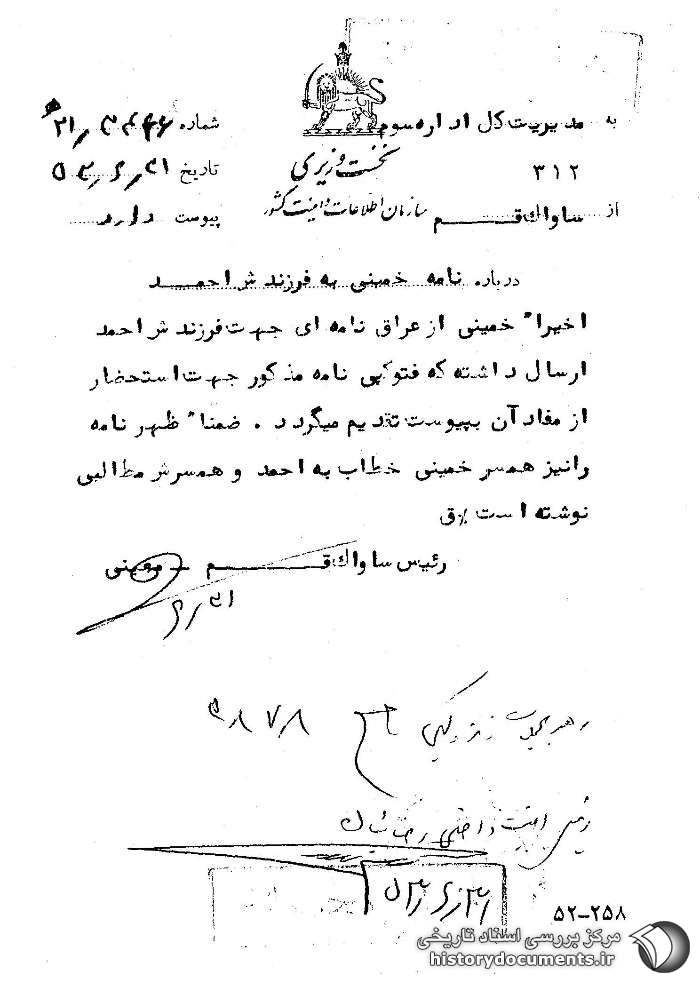 به مدیریت کل اداره سوم
۳۱۲
از ساواک قم
نخست وزیری
سازمان اطلاعات و امنیت کشور
شماره
تاریخ
پیوست دارد
درباره نامه خمینی به فرزندش احمد
اخیرا" خمینی از عراق نامه ای جهت فرزندش احمد
ارسال داشته که فتوکپی نامه مذکور جهت استحضار
از مفاد آن بپیوست تقدیم میگردد . ضمنا" ظهر نامه
رانیز همسر خمینی خطاب به احمد و همسرش مطالبی
نوشته است %ق
رئیس ساواک قم - معینی
۳۸۷۸
۵۲-۲۵۸
مرکز بررسی اسناد تاریخی
historydocuments.ir